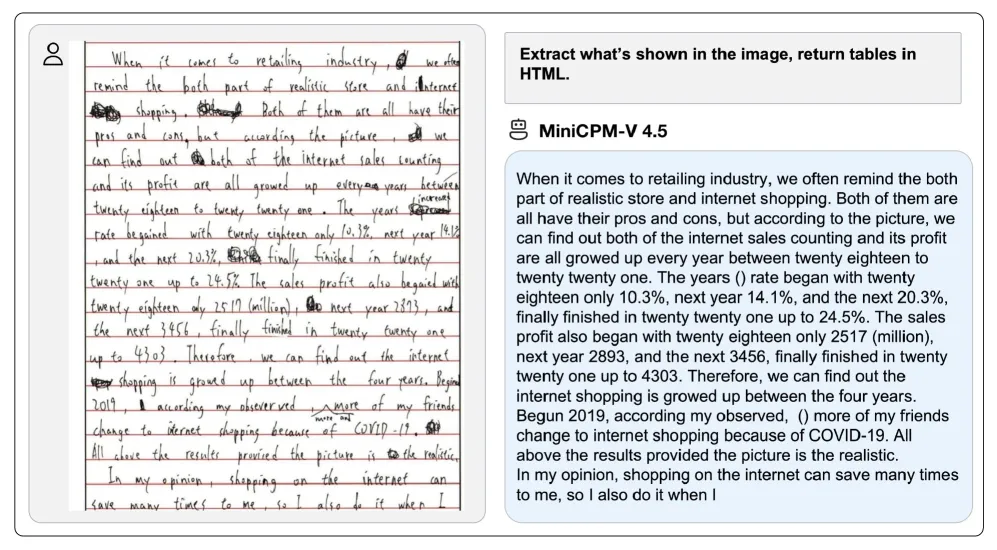 When it comes to retailing industry, we often
remind the both part of realistic store and internet
shopping. Both of them are all have their
pros and cons, but according the picture, we
can find out both of the internet sales counting
and its profit are all growed up every years between
twenty eighteen to twenty twenty one. The years increased
rate begained with twenty eighteen only 10.3%, next year 14.1%
, and the next 20.3%, finally finished in twenty
twenty one up to 24.5%. The sales profit also begaied with
twenty eighteen only 2517 (million), next year 2893, and
the next 3456, finally finished in twenty twenty one
up to 4303. Therefore, we can find out the internet
shopping is growed up between the four years. Begind
2019, according my obseverved more and more of my friends
change to internet shopping because of COVID-19.
All above the results provired the picture is the realistic.
In my opinion, shopping on the internet can
save many times to me, so I also do it when I
Extract what's shown in the image, return tables in
HTML.
MiniCPM-V 4.5
When it comes to retailing industry, we often remind the both
part of realistic store and internet shopping. Both of them are
all have their pros and cons, but according to the picture, we
can find out both of the internet sales counting and its profit
are all growed up every year between twenty eighteen to
twenty twenty one. The years () rate began with twenty
eighteen only 10.3%, next year 14.1%, and the next 20.3%,
finally finished in twenty twenty one up to 24.5%. The sales
profit also began with twenty eighteen only 2517 (million),
next year 2893, and the next 3456, finally finished in twenty
twenty one up to 4303. Therefore, we can find out the
internet shopping is growed up between the four years.
Begun 2019, according my observed, () more of my friends
change to internet shopping because of COVID-19. All
above the results provided the picture is the realistic.
In my opinion, shopping on the internet can save many times
to me, so I also do it when I